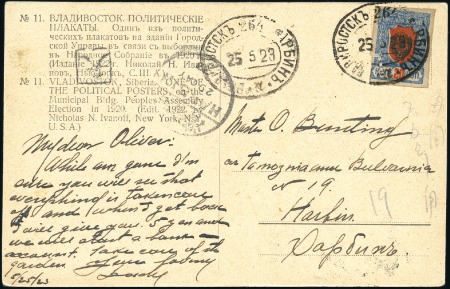 № 11. ВЛАДИВОСТОК. ПОЛИТИЧЕСКІЕ
ПЛАКАТЫ. Один из полити-
ческих плакатов на здании Город-
ской Управы в связи с выборами
в Народное Собрание в 1920 г.
(Издание 1922 г. Николай Н. Ива-
нов, Нью-Йорк, С.Ш.А.)
№ 11. VLADIVOSTOK, Siberia. ONE OF
THE POLITICAL POSTERS, on the
Municipal Bldg. Peoples' Assembly
Election in 1920. (Edit. 1922.
Nicholas N. Ivanoff, New York, N.Y.
U. S. A.)
25 5 23
25 5 23
My dear Oliver:
While am gone I'm
sure you will see that
everything is taken care
of and when I get back
I will give you 5 yen and
we will start a bank
account. Take care of the
garden. Your loving
Daddy
5/25/23
Master O. Bunting
Bulvarnia
№ 19.
Harbin.
Харбинъ.
19